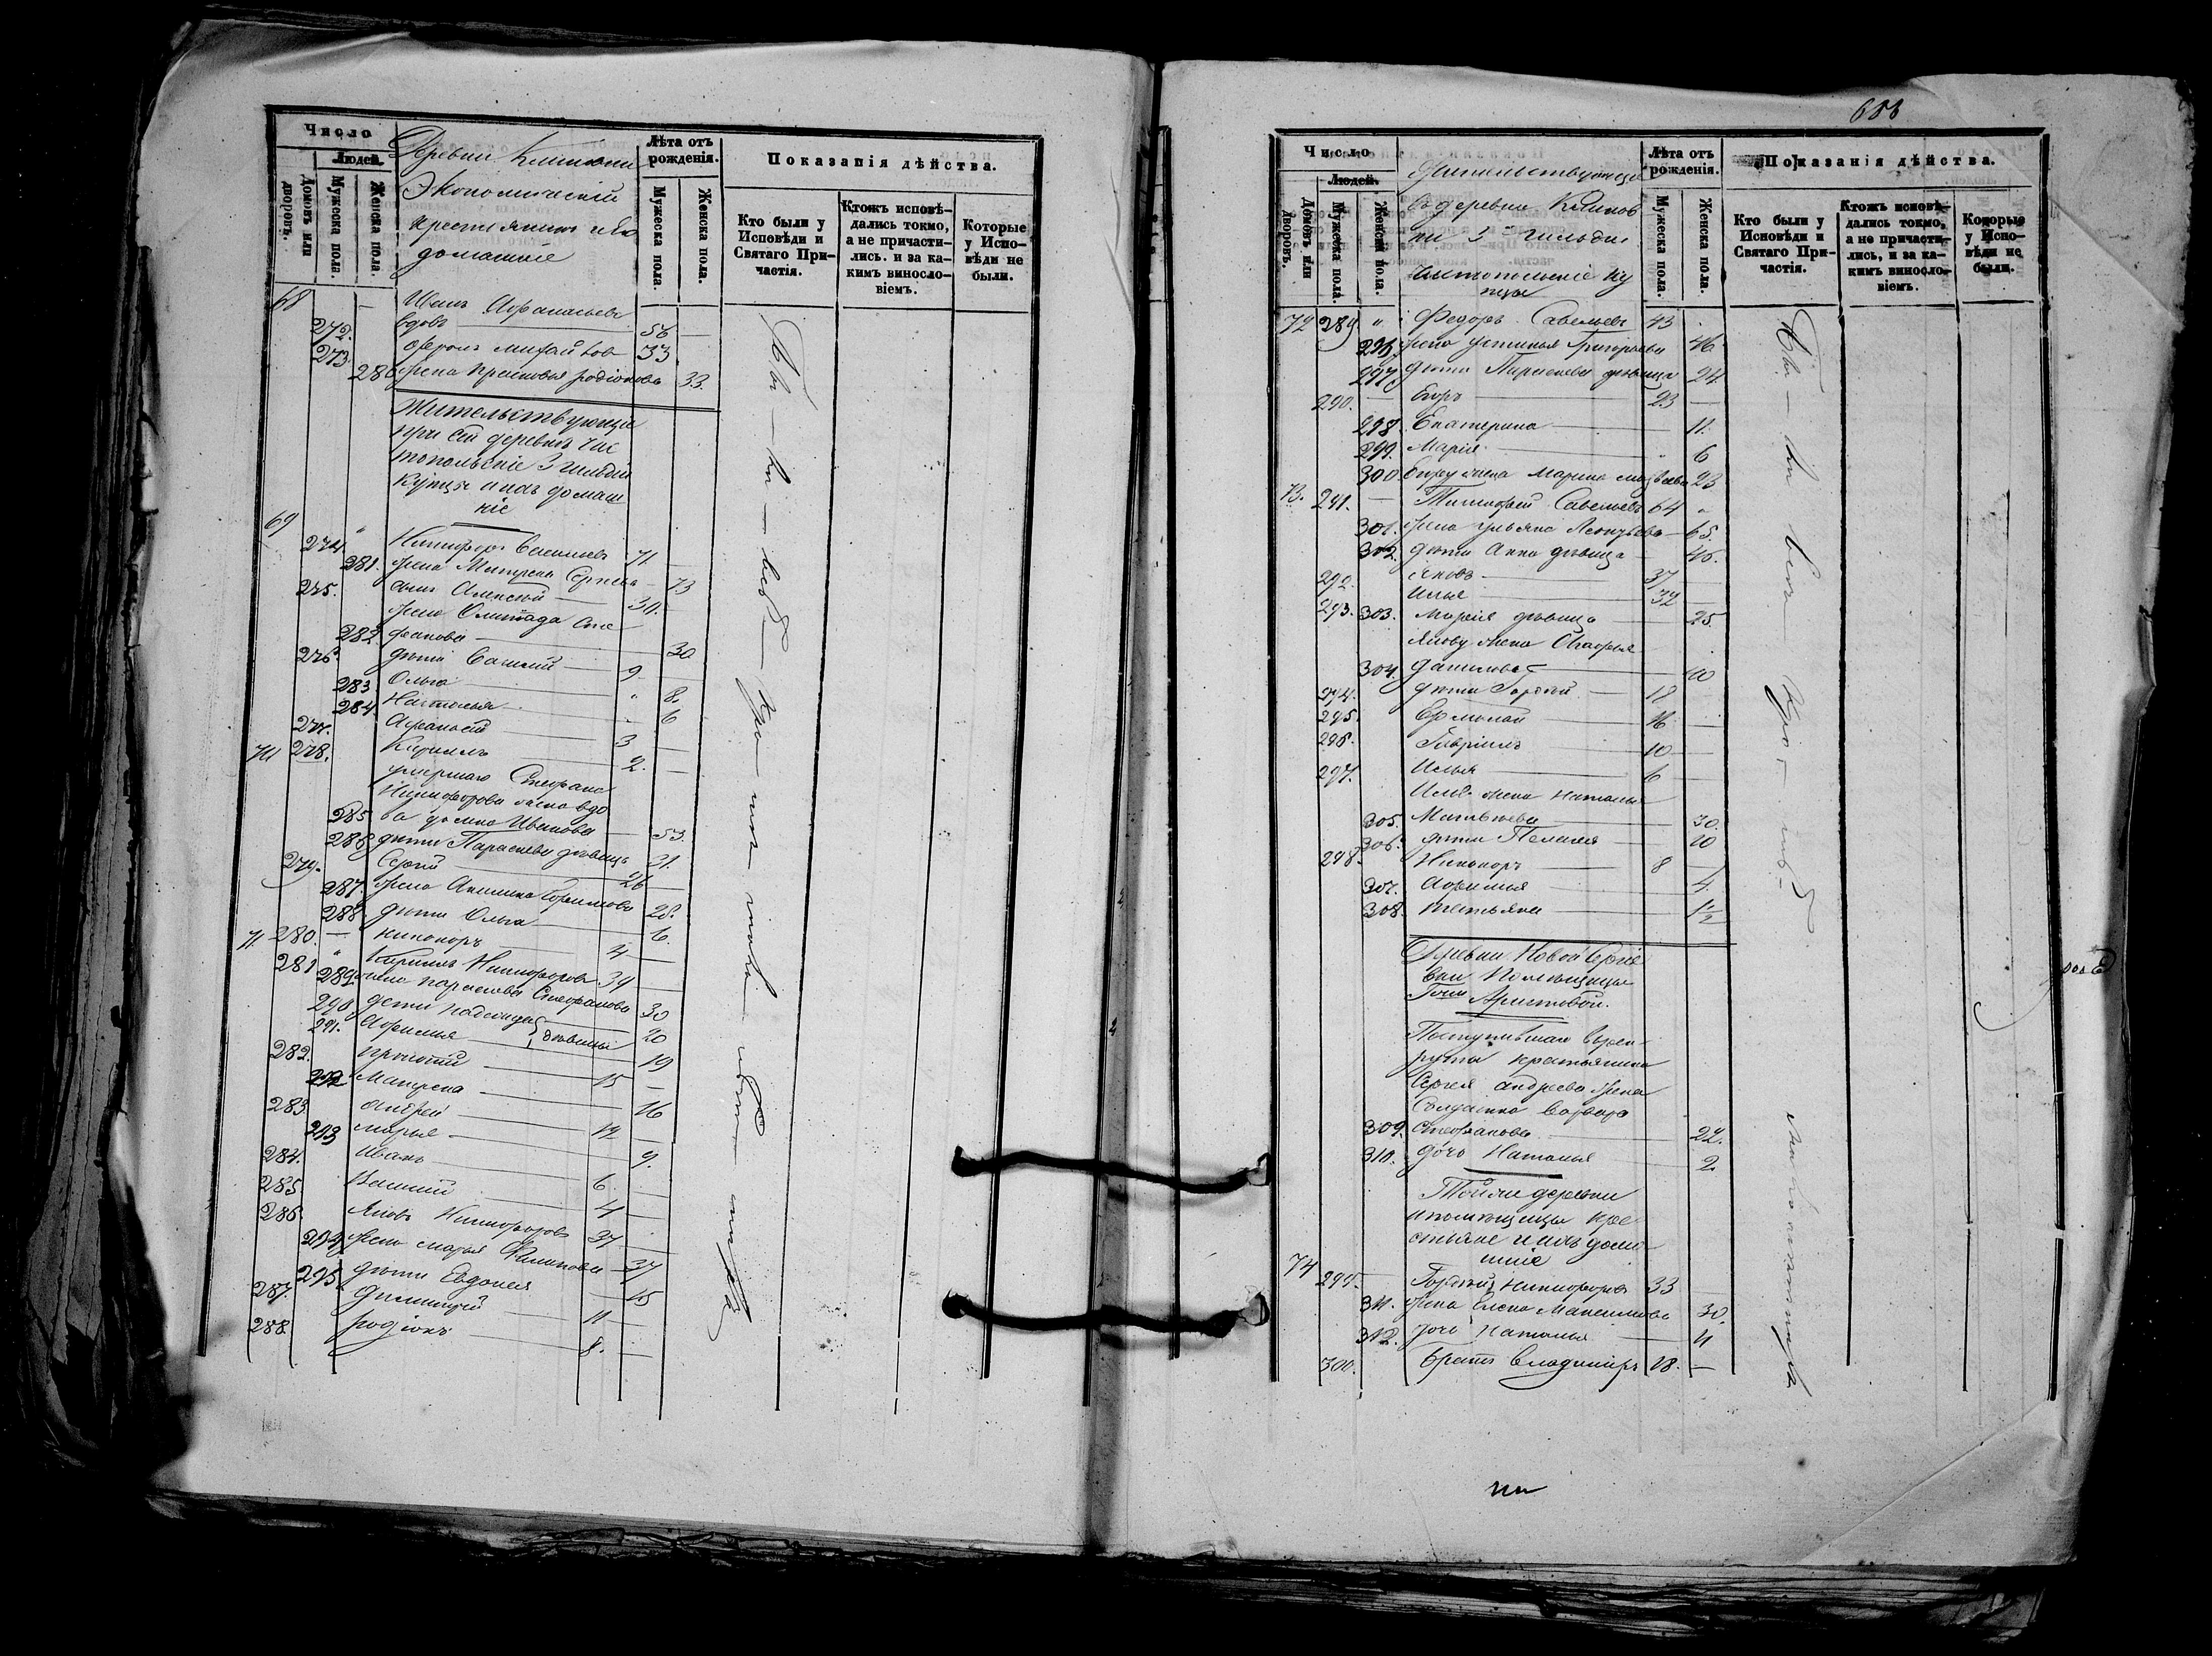 Число
Людей.
Домовъ или дворовъ.
Мужеска пола.
Женска пола.
Деревни
Экономическій
крестьянинъ и Его
домашніе
Лѣта отъ рожденія.
Мужеска пола.
Женска пола.
Показанія дѣйства.
Кто были у Исповѣди и Святаго Причастія.
Ктожъ исповѣдались токмо, а не причастились. и за какимъ винословіемъ.
Которые у Исповѣди не были.
68 — Иванъ Афанасьевъ
272. вдовъ — 56 —
273. Михайлов 33
280 жена Прасковья Родіонова 33.
Жительствующіе
при сей деревнѣ Чис
топольскіе 3 гильдіи
Купцы и ихъ домаш
ніе
69 274. Никифоръ Васильевъ 71. —
281. жена Матрена Сергѣева — 73
275. сынъ Алексѣй — 30. —
жена Олимпіада Сте
282. фанова — 30
276. дѣти Василій — 9 —
283. Ольга — " 8.
284. Наталья — 6
277. Афанасій — 3 —
70 278. Кириллъ — 2. —
умершаго Стефана
Никифорова жена вдо
285 ва Домна Иванова — 53.
286 дѣти Параскева дѣвица 31.
279. Сергій — 26 —
287. жена Акилина Ефимова 28.
288 дѣти Ольга — 6.
280. — Никоноръ — 4 —
71. 281 " Кириллъ Никифоровъ 39 —
289. жена Параскева Стефанова 30
290 дети Надежда — 20
291. Афимья — дѣвицы 19
282. Прокопій — 15 —
292 Матрена — 16
283. Андрей — 12 —
293 Марья — 9.
284. Иванъ — 6 —
285. Василій — 4 —
286. Яковъ Никифоровъ 37 .
294 жена Марья Филипова — 37
295 дѣти Евдокея — 15
287. Димитрій — 11 —
288. Родіонъ — 8. —
686
Число
Людей.
Домовъ или дворовъ.
Мужеска пола.
Женска пола.
Жительствующіе
въ деревнѣ
3й гильдіи
Чистопольскіе ку
пцы
Лѣта отъ рожденія.
Мужеска пола.
Женска пола.
Показанія дѣйства.
Кто были у Исповѣди и Святаго Причастія.
Ктожъ исповѣдались токмо, а не причастились, и за какимъ винословіемъ.
Которые у Исповѣди не были.
72 289 " Федоръ Савельевъ 43
296. жена Устинья Григорьева 46
297. дѣти Параскева дѣвица 24
290. — Егоръ — 23 —
298. Екатерина — 11.
299. Марія — 6
300. Егору жена Марина 23
73. 291. — Тимофей Савельевъ 64 "
301. жена Ульяна Леонтьева — 65.
302. дѣти Анна дѣвица — 45.
292. Яковъ — 37 —
293. Илья — 32 —
303. Марія дѣвица — 25
Якову жена Агафья
304. Данилова — 40
294. дѣти Гордей — 18
295. Ермолай — 16
296. Гавріилъ — 10 —
297. Илья — 6 —
Ильѣ жена Наталья
305. Матвѣева — 30.
306. дѣти Пелагея — 10
298. Никоноръ — 8 —
307. Афимья — 4.
308. Татьяна — 1 1/2
Деревни Новой Сергѣ
евки помѣщицы
Гжи
Поступившаго въ рек
руты крестьянина
Сергея Андреева жена
Солдатка Варвара
309. Стефанова — 22.
310. дочь Наталья — 2.
Тойже деревни
и помѣщицы кре
стьяне и ихъ дома
шніе
74 299. — Гордѣй Никифоровъ 33
311. жена Елена Максимова 30.
312. дочь Наталья — 4
300. братъ Владимиръ 28. —